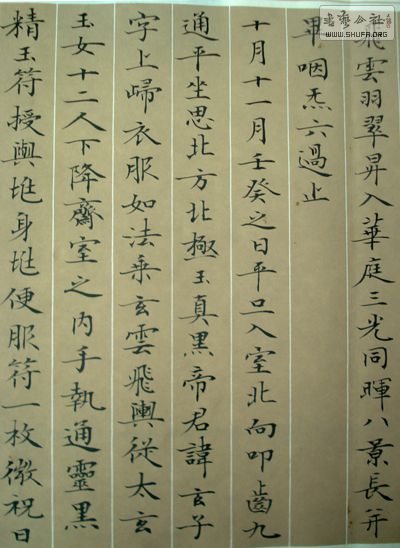 飛雲羽翠昇入華庭三光同暉八景長并
畢咽炁六過止
十月十一月壬癸之日平旦入室北向叩齒九
通平坐思北方北極玉真黑帝君諱玄子
字上歸衣服如法乘玄雲飛輿從太玄
玉女十二人下降齋室之内手執通靈黑
精玉符授與兆身兆便服符一枚微祝曰
書藝公社
WWW.SHUFA.ORG